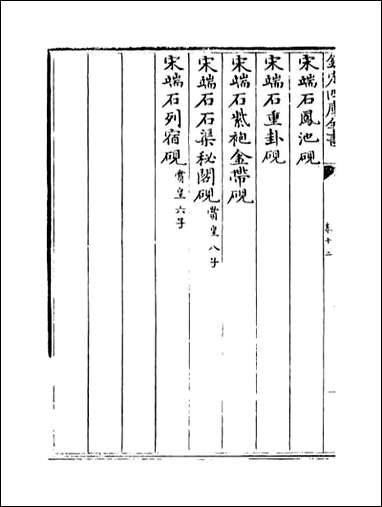 欽定四庫全書
卷十二
宋端石鳳池硯
宋端石重卦硯
宋端石紫袍金帶硯
宋端石石渠秘閣硯 賞皇八子
宋端石列宿硯 賞皇六子